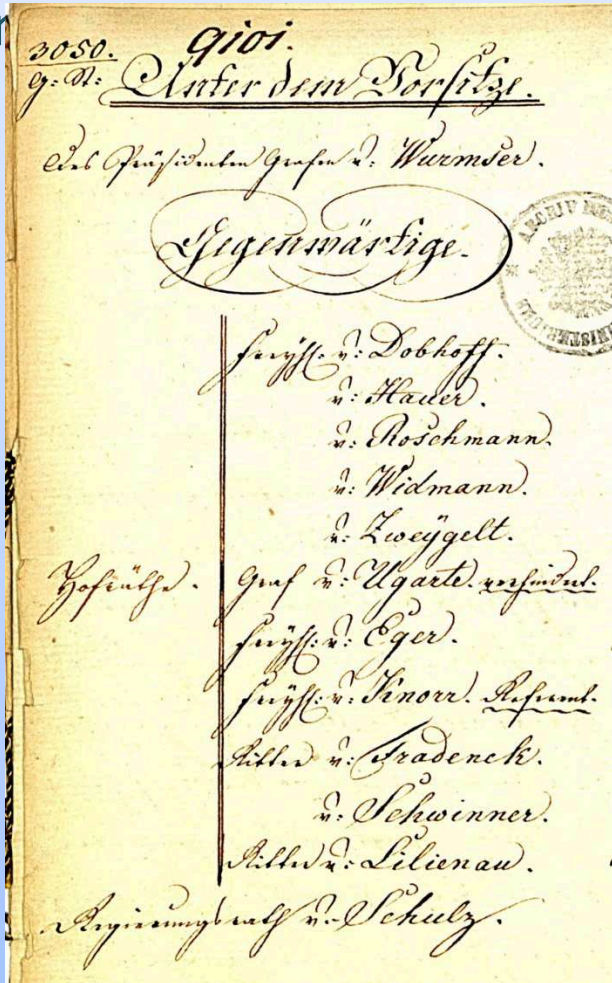 3050.
G: St:
Unter dem Vorsitze.
Des Präsidenten Grafen v: Wurmser.
Gegenwärtige.
Freyh: v: Dobhoff.
v: Hauer.
v: Roschmann.
v: Widmann.
v: Zweÿgelt.
Hofräthe. Graf v: Ugarte. verhindert.
Freyh: v: Eger.
Freyh: v: Knorr. Referent.
Ritter v: Fradeneck.
v: Schwinner.
Ritter v: Lilienau.
Regierungsrath v: Schulz.
ARCHIV